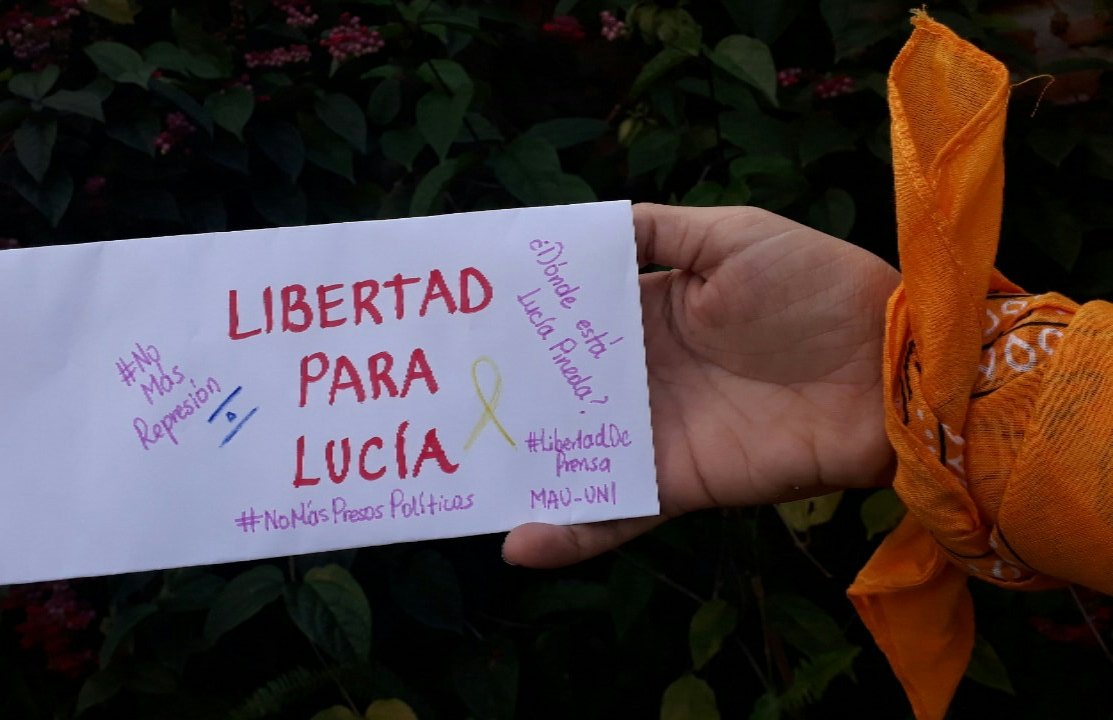 LIBERTAD
PARA
LUCÍA
#NoMásPresosPolíticos
#No
Más
Represión
¿Dónde está
Lucía Pineda?
#LibertadDe
Prensa
MAU-UNI